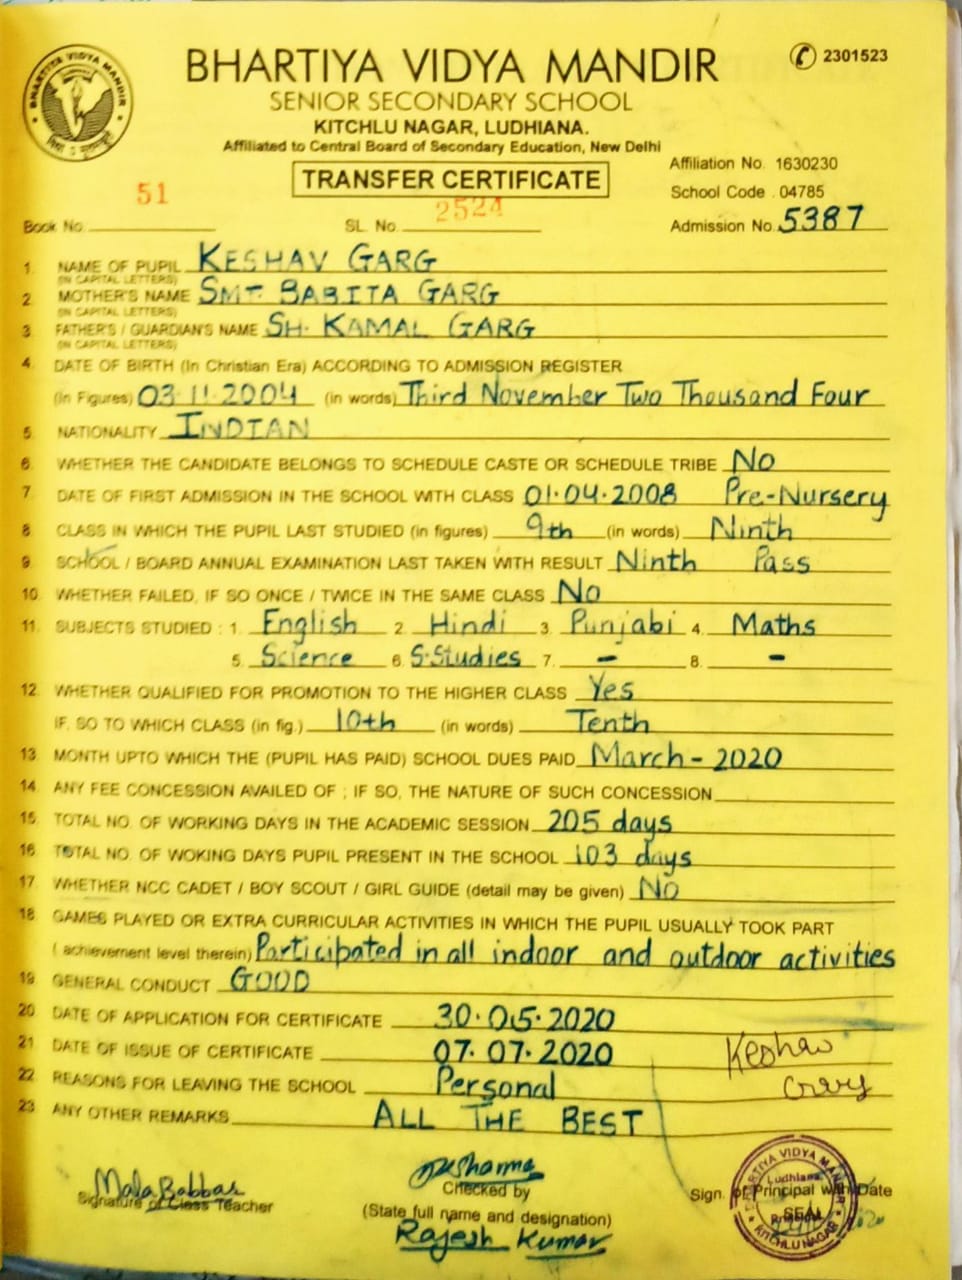 BHARTIYA VIDYA MANDIR
BHARTIYA VIDYA MANDIR
2301523
SENIOR SECONDARY SCHOOL
KITCHLU NAGAR, LUDHIANA.
Affiliated to Central Board of Secondary Education, New Delhi
TRANSFER CERTIFICATE
Affiliation No. 1630230
School Code 04785
Book No. 51 SL. No. 2524 Admission No. 5387
1. NAME OF PUPIL KESHAV GARG
(IN CAPITAL LETTERS)
2 MOTHER'S NAME SMT. BABITA GARG
(IN CAPITAL LETTERS)
3 FATHER'S / GUARDIAN'S NAME SH. KAMAL GARG
(IN CAPITAL LETTERS)
4 DATE OF BIRTH (In Christian Era) ACCORDING TO ADMISSION REGISTER
(In Figures) 03.11.2004 (in words) Third November Two Thousand Four
5 NATIONALITY INDIAN
6 WHETHER THE CANDIDATE BELONGS TO SCHEDULE CASTE OR SCHEDULE TRIBE No
7 DATE OF FIRST ADMISSION IN THE SCHOOL WITH CLASS 01.04.2008 Pre-Nursery
8 CLASS IN WHICH THE PUPIL LAST STUDIED (in figures) 9th (in words) Ninth
9 SCHOOL / BOARD ANNUAL EXAMINATION LAST TAKEN WITH RESULT Ninth Pass
10. WHETHER FAILED, IF SO ONCE / TWICE IN THE SAME CLASS No
11. SUBJECTS STUDIED : 1. English 2. Hindi 3. Punjabi 4. Maths
5. Science 6. S.Studies 7. - 8. -
12. WHETHER QUALIFIED FOR PROMOTION TO THE HIGHER CLASS Yes
IF, SO TO WHICH CLASS (in fig.) 10th (in words) Tenth
13 MONTH UPTO WHICH THE (PUPIL HAS PAID) SCHOOL DUES PAID March - 2020
14 ANY FEE CONCESSION AVAILED OF ; IF SO, THE NATURE OF SUCH CONCESSION
15 TOTAL NO. OF WORKING DAYS IN THE ACADEMIC SESSION 205 days
16 TOTAL NO. OF WOKING DAYS PUPIL PRESENT IN THE SCHOOL 103 days
17 WHETHER NCC CADET / BOY SCOUT / GIRL GUIDE (detail may be given) No
18 GAMES PLAYED OR EXTRA CURRICULAR ACTIVITIES IN WHICH THE PUPIL USUALLY TOOK PART
( achievement level therein) Participated in all indoor and outdoor activities
19 GENERAL CONDUCT GOOD
20 DATE OF APPLICATION FOR CERTIFICATE 30.05.2020
21 DATE OF ISSUE OF CERTIFICATE 07.07.2020
Keshav
22 REASONS FOR LEAVING THE SCHOOL Personal
Garg
23 ANY OTHER REMARKS ALL THE BEST
Mala Babbar
Signature of Class Teacher
Sharma
Checked by
(State full name and designation)
Rajesh Kumar
Sign. of Principal with Date
SEAL
BHARTIYA VIDYA MANDIR
Ludhiana
Principal
KITCHLU NAGAR